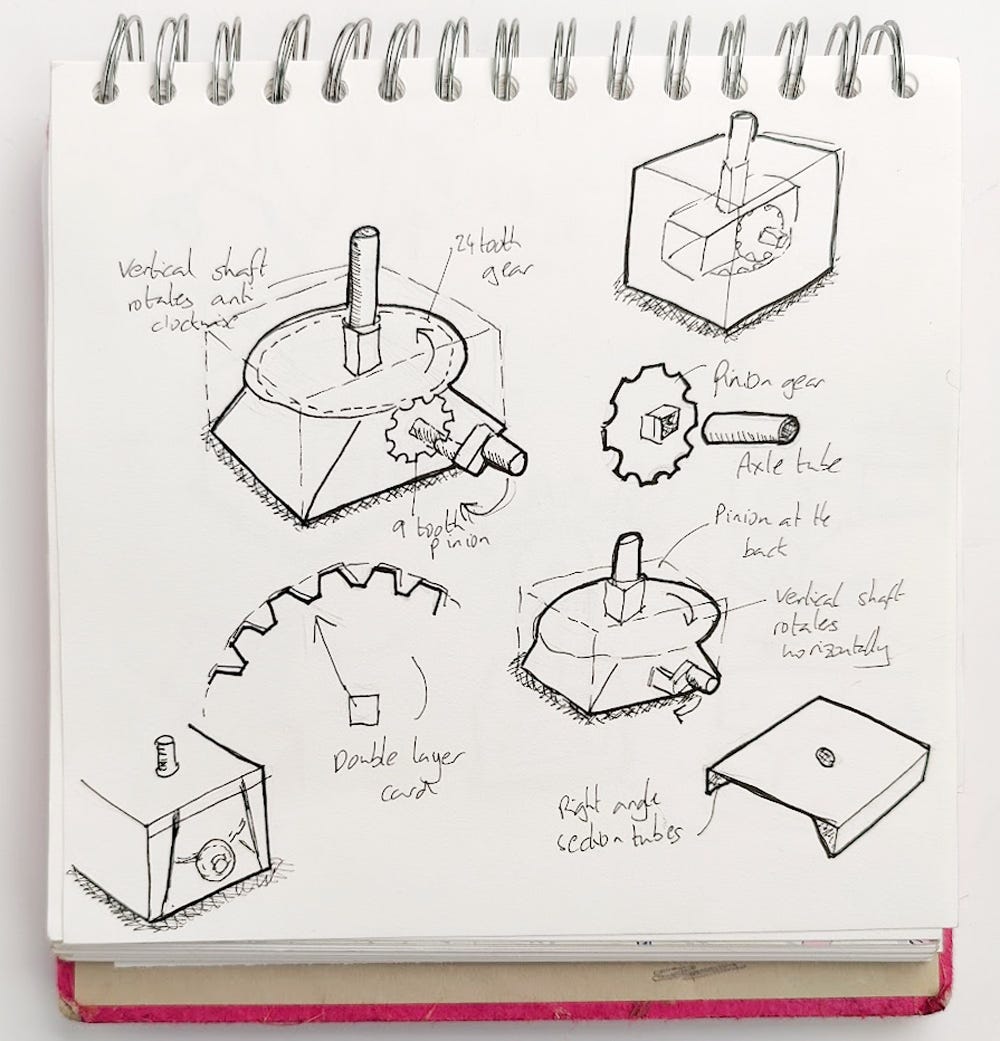 Vertical shaft
rotates anti
clockwise
24 tooth
gear
9 tooth
pinion
Pinion gear
Axle tube
Pinion at the
back
Vertical shaft
rotates
horizontally
Double layer
card
Right angle
section tubes